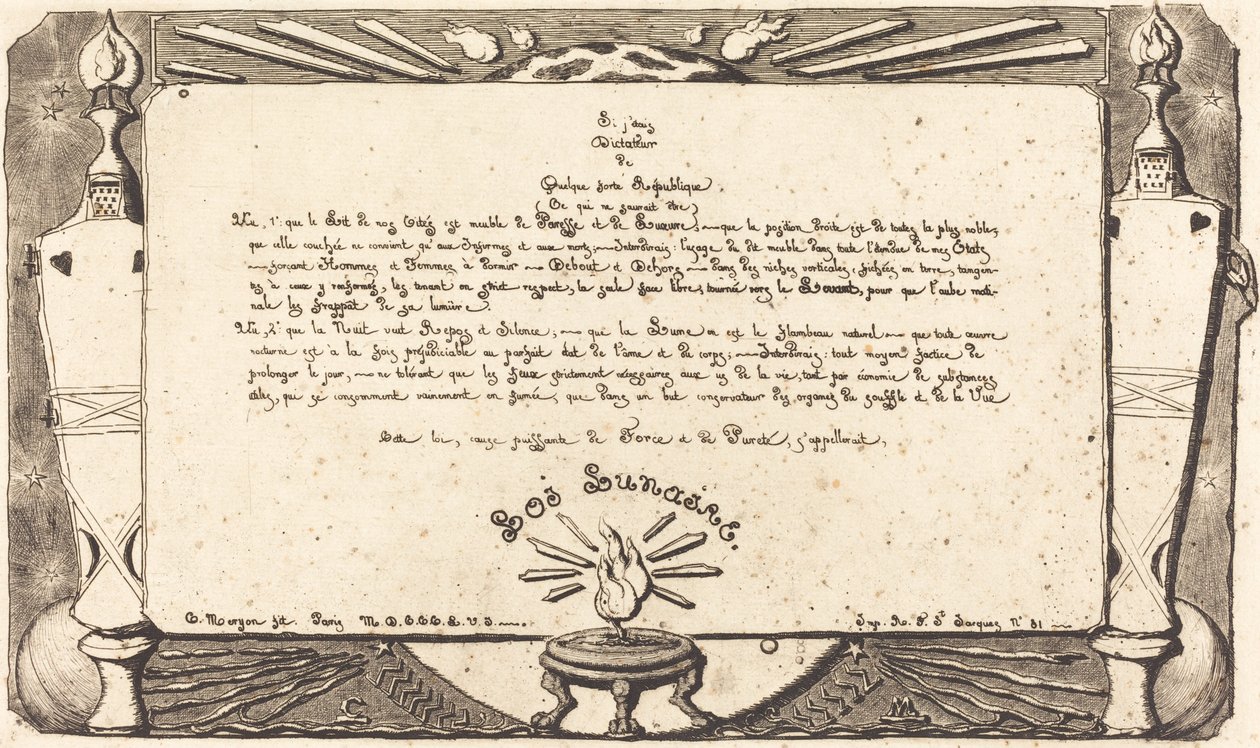 Si j'étais
Dictateur
de
Quelque forte République
(Ce qui ne saurait être)
Vu, 1º: que le Lit de nos Cités est meuble de Paresse et de Luxure; que la position droite est de toutes la plus noble,
que celle couchée ne convient qu'aux Infirmes et aux morts; Interdirais: l'usage du dit meuble dans toute l'étendue de mes Etats
forçant Hommes et Femmes à dormir Debout et Dehors dans des niches verticales, fichées en terre, tangen-
tes à ceux y renfermés, les tenant en strict respect, la seule face libre, tournée vers le Levant, pour que l'aube mati-
nale les frappât de sa lumière.
Vu, 2º: que la Nuit veut Repos et Silence; que la Lune en est le flambeau naturel que toute œuvre
nocturne est à la fois préjudiciable au parfait état de l'âme et du corps; Interdirais: tout moyen factice de
prolonger le jour, ne tolérant que les feux strictement nécessaires aux us de la vie, tant par économie de substances
utiles, qui se consomment vainement en fumée, que dans un but conservateur des organes du souffle et de la Vue
Cette loi, cause puissante de Force et de Pureté, s'appellerait,
Loi Lunaire.
C. Meryon fit. Paris M.D.C.C.C.L.V.I. Imp. R. F. St Jacques Nº 81